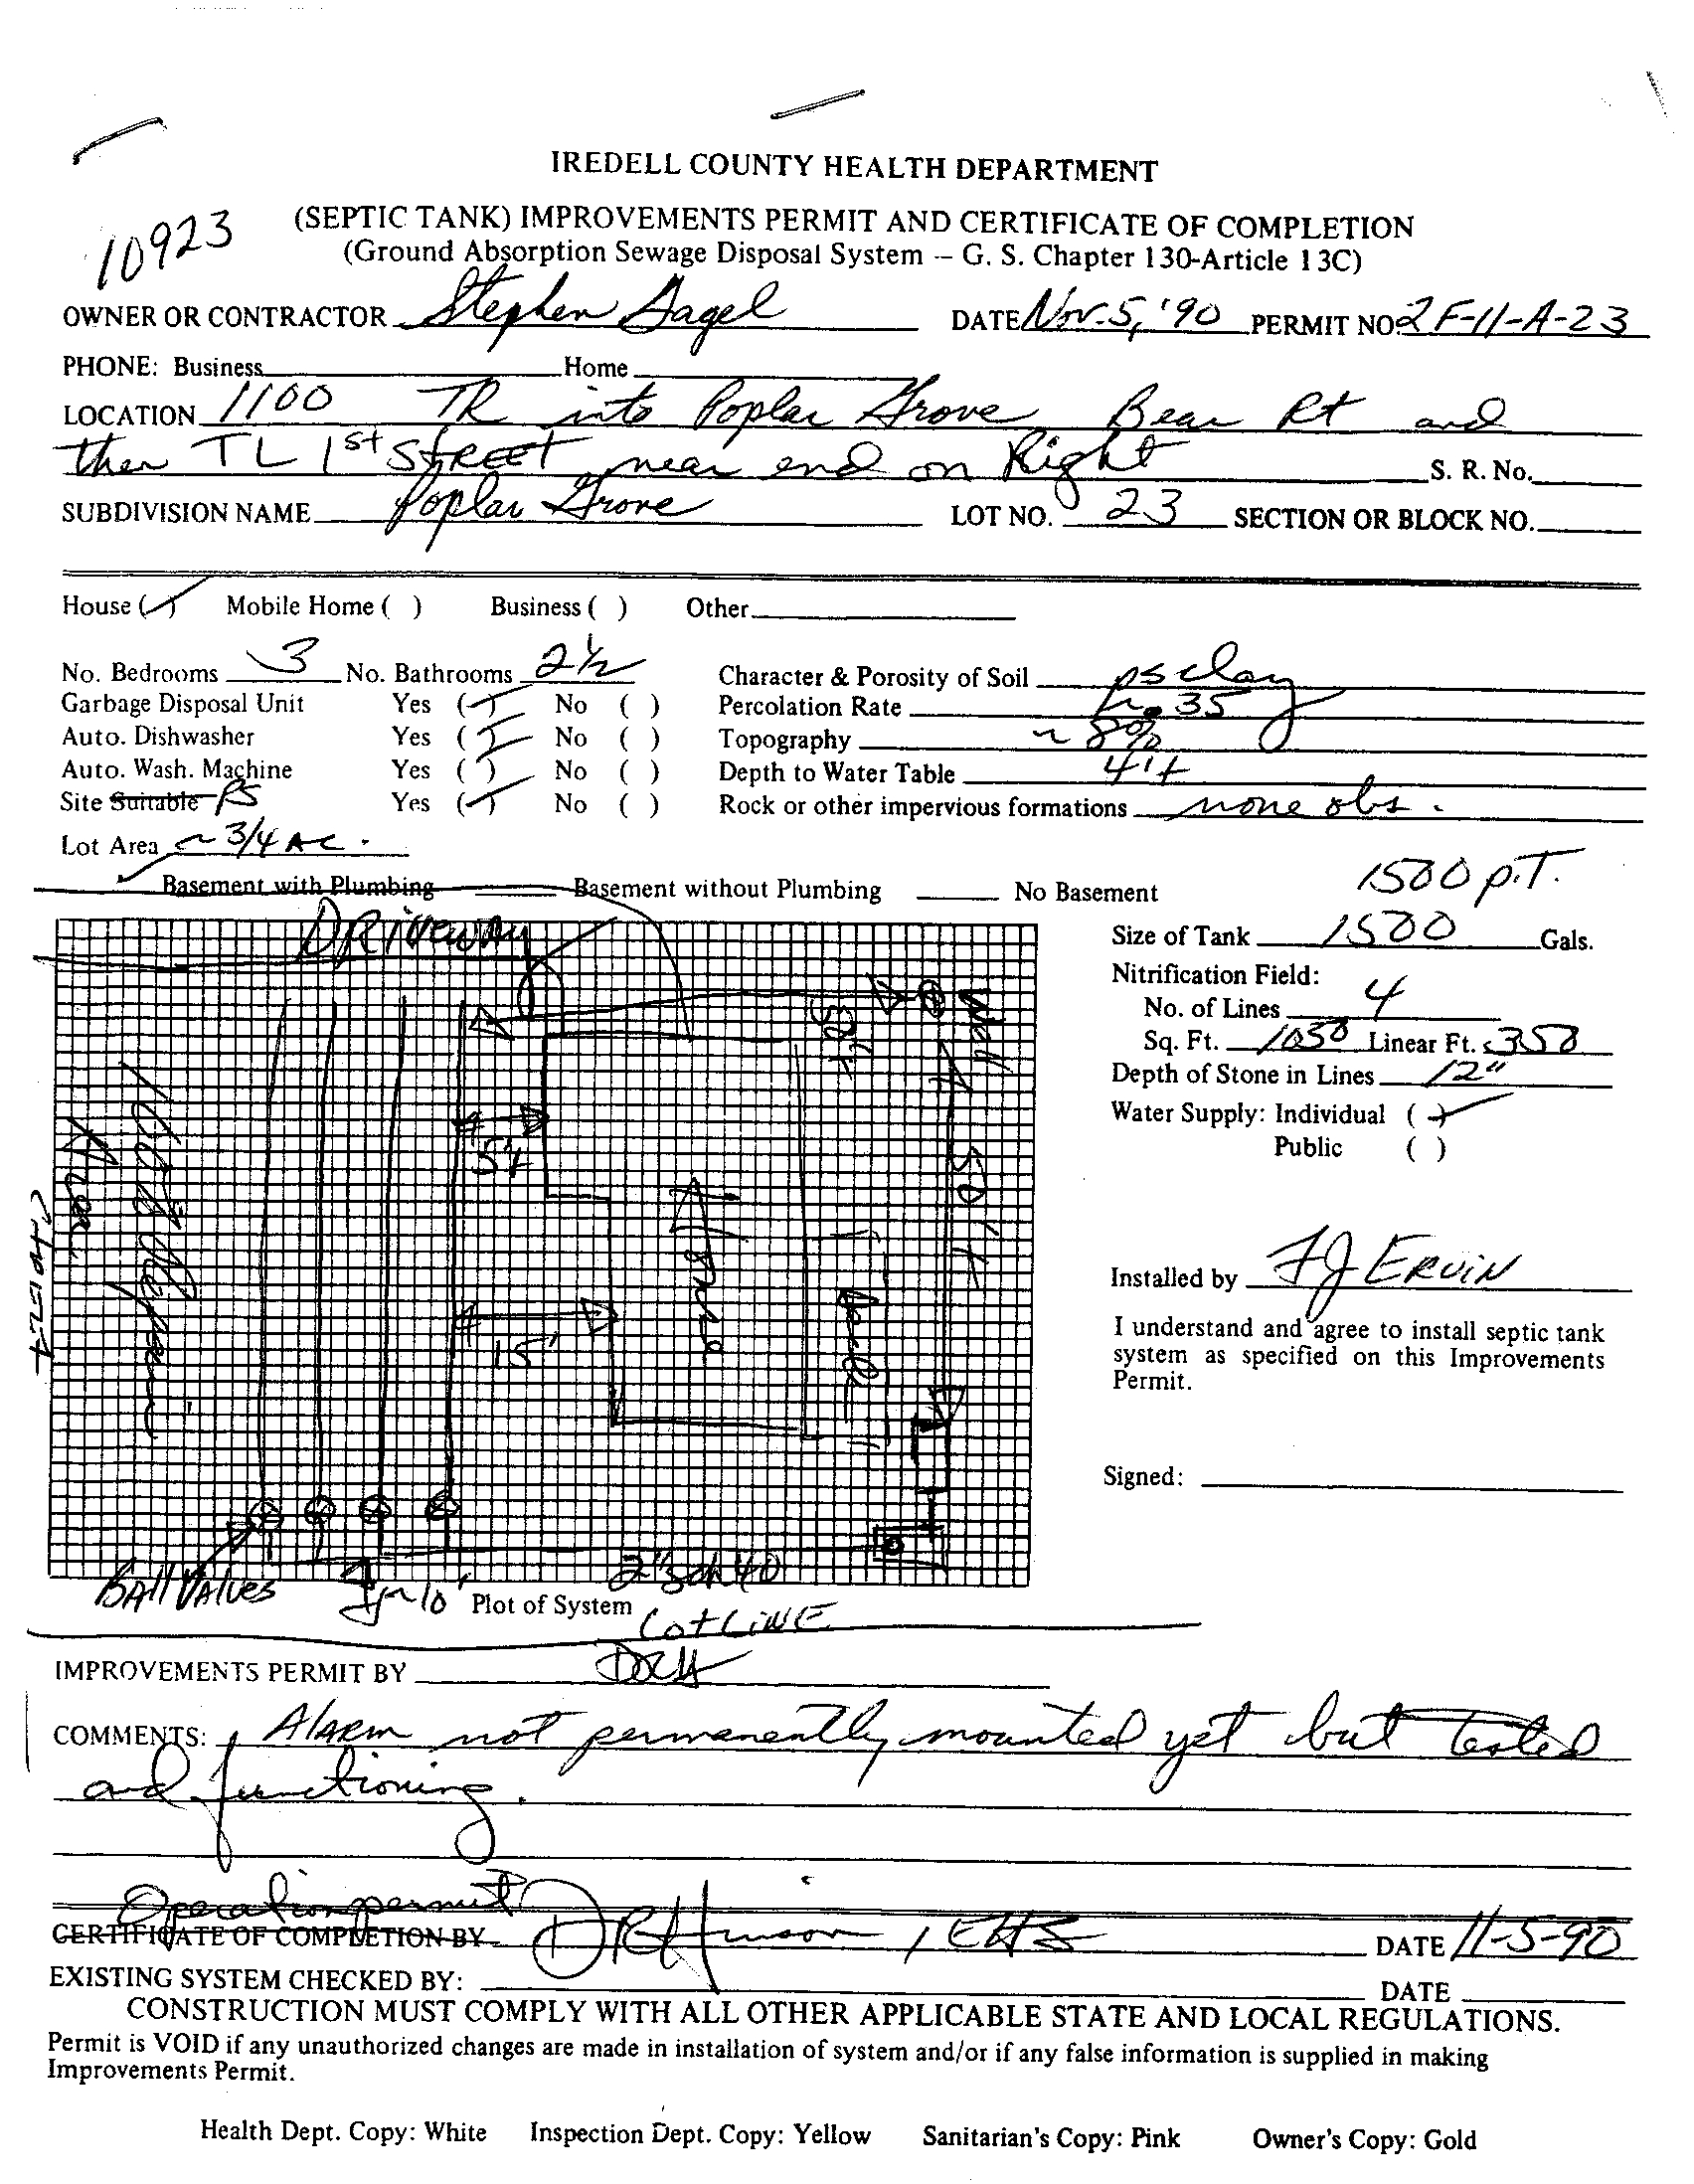 IREDELL COUNTY HEALTH DEPARTMENT
10923
(SEPTIC TANK) IMPROVEMENTS PERMIT AND CERTIFICATE OF COMPLETION
(Ground Absorption Sewage Disposal System -- G. S. Chapter 130-Article 13C)
OWNER OR CONTRACTOR Stephen Gagel DATE Nov. 5, '90 PERMIT NO. 2F-11-A-23
PHONE: Business Home
LOCATION 1100 TR into Poplar Grove Bear Rt and
then TL 1st STREET near end on Right S. R. No.
SUBDIVISION NAME Poplar Grove LOT NO. 23 SECTION OR BLOCK NO.
House (✓) Mobile Home ( ) Business ( ) Other
No. Bedrooms 3 No. Bathrooms 2½ Character & Porosity of Soil ps clay
Garbage Disposal Unit Yes (✓) No ( ) Percolation Rate 35
Auto. Dishwasher Yes (✓) No ( ) Topography ~ 8%
Auto. Wash. Machine Yes (✓) No ( ) Depth to Water Table 4'+
Site Suitable PS Yes (✓) No ( ) Rock or other impervious formations none obs.
Lot Area ~ 3/4 AC.
✓ Basement with Plumbing Basement without Plumbing No Basement
1500 p.T.
DRiVEWAy
Size of Tank 1500 Gals.
Nitrification Field:
No. of Lines 4
Sq. Ft. 1050 Linear Ft. 350
Depth of Stone in Lines 12"
Water Supply: Individual (✓)
Public ( )
Well
50'+
50'+
5'+
15'
100% Repair
Area
House
Deck
Lot LINE
Installed by FJ ERVIN
I understand and agree to install septic tank
system as specified on this Improvements
Permit.
Signed:
BAll VAlves ~10' Plot of System 2" sch 40
Lot LINE
IMPROVEMENTS PERMIT BY DRH
COMMENTS: Alarm not permanently mounted yet but tested
and functioning.
Operation permit
CERTIFICATE OF COMPLETION BY DR Hinson, EHS DATE 11-5-90
EXISTING SYSTEM CHECKED BY: DATE
CONSTRUCTION MUST COMPLY WITH ALL OTHER APPLICABLE STATE AND LOCAL REGULATIONS.
Permit is VOID if any unauthorized changes are made in installation of system and/or if any false information is supplied in making
Improvements Permit.
Health Dept. Copy: White Inspection Dept. Copy: Yellow Sanitarian's Copy: Pink Owner's Copy: Gold